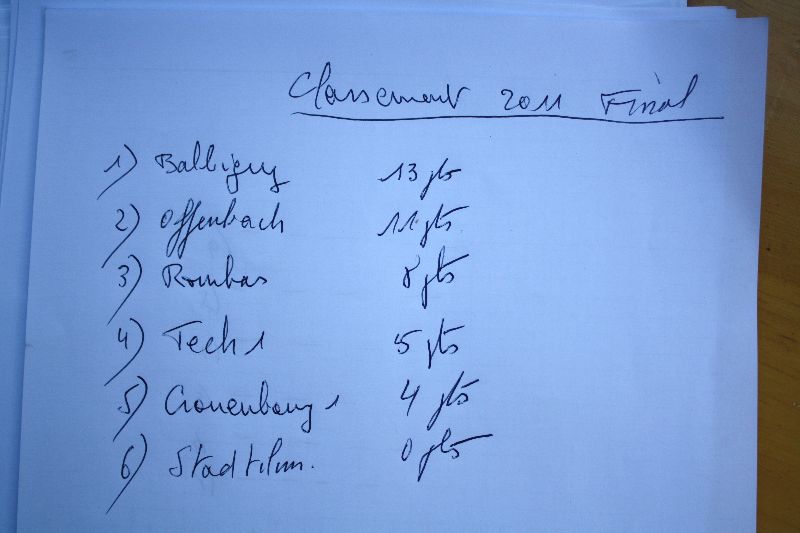 Classement 2011 Final
1) Balbigny 13 pts
2) Offenbach 11 pts
3) Rombas 8 pts
4) Tech 1 5 pts
5) Cronenbourg 1 4 pts
6) Stadtilm. 0 pts